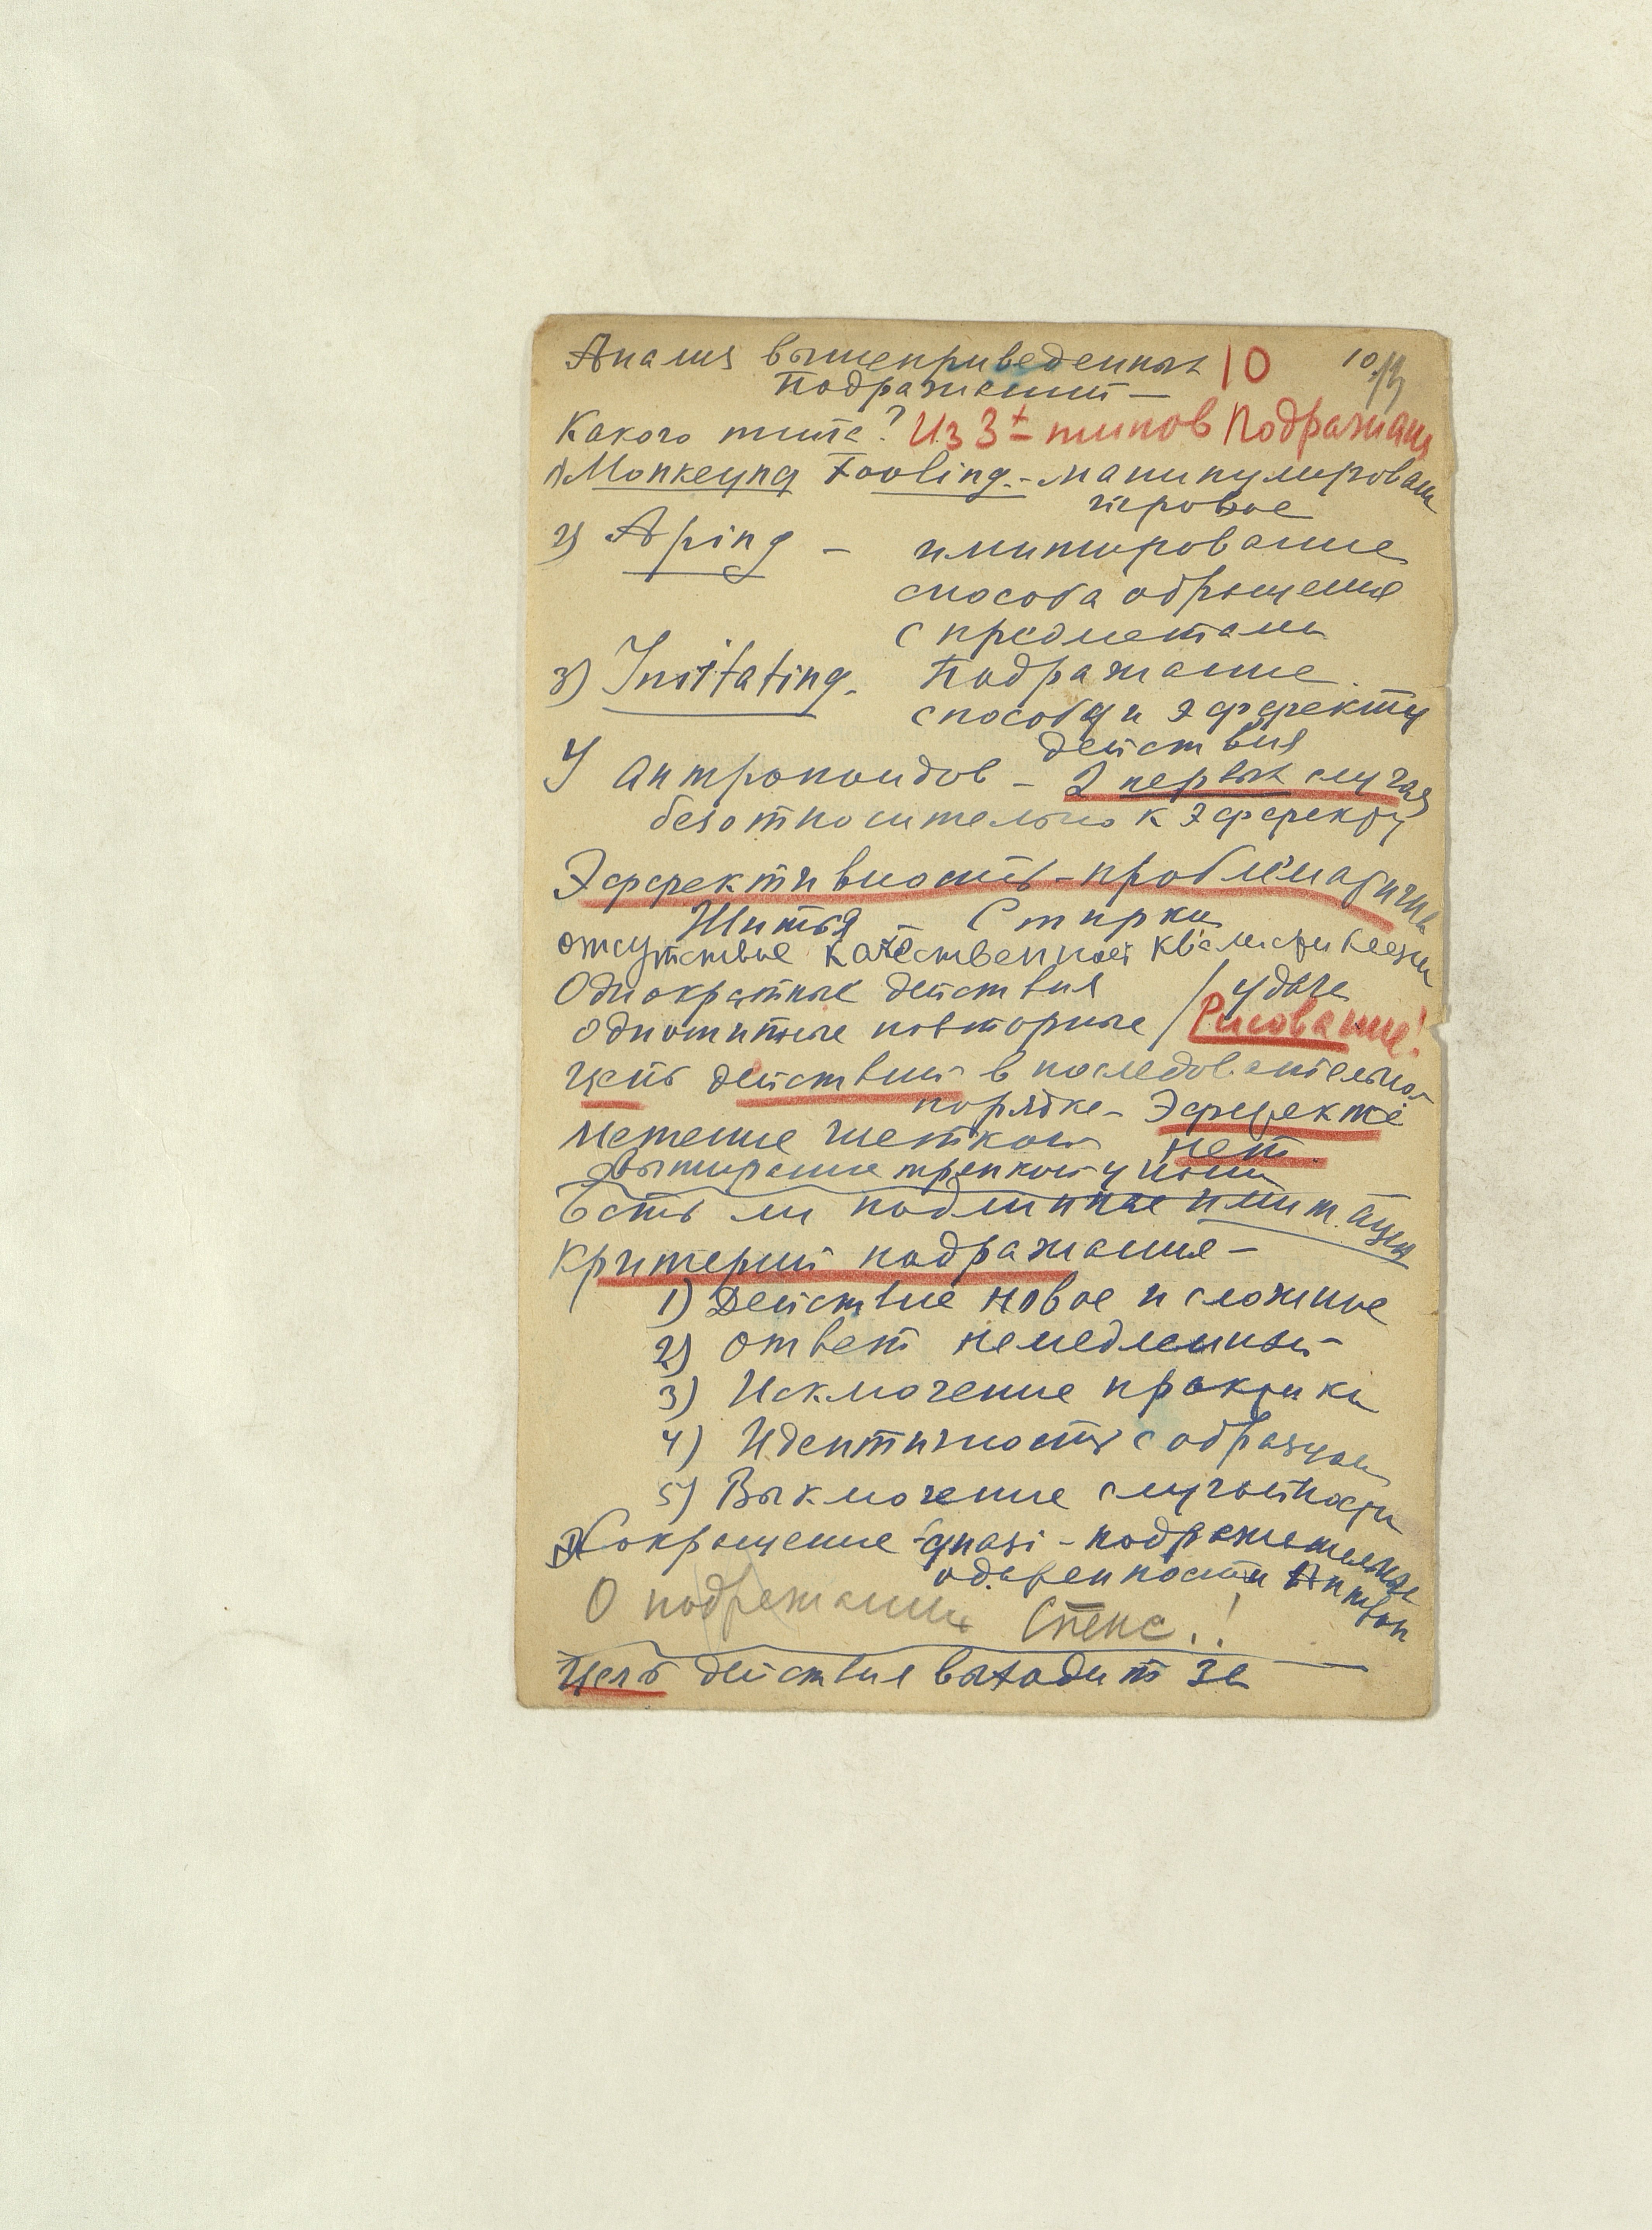 Анализ вышеприведенных 10 10
Подражаний —
Какого типа? Из 3х типов Подражания
1) Monkeyng Fooling. - манипулирован
игровое
2) Aping — имитирование
способа обращения
с предметами
3) Imitating. Подражание
способу и эффекту
действия
У антропоидов — 2 первых случая
безотносительно к эффекту
Эффективность - проблематична
Шитья — Стирки
отсутствие качественной квалификации
Однократные действия / удача
однотипные повторные / Рисование!
Цепь действий в последовательном
порядке — Эффекта
Метение щеткой нет.
Вытирание тряпкой у Иони
Есть ли подлинные имитации
Критерий подражания —
1) Действие новое и сложное
2) Ответ немедленный —
3) Исключение практики
4) Идентичность с образцом
5) Выключение случайности
Сокращение quasi - подражательной
одаренности
О подражании Спенс..!
Цель действия выходит за